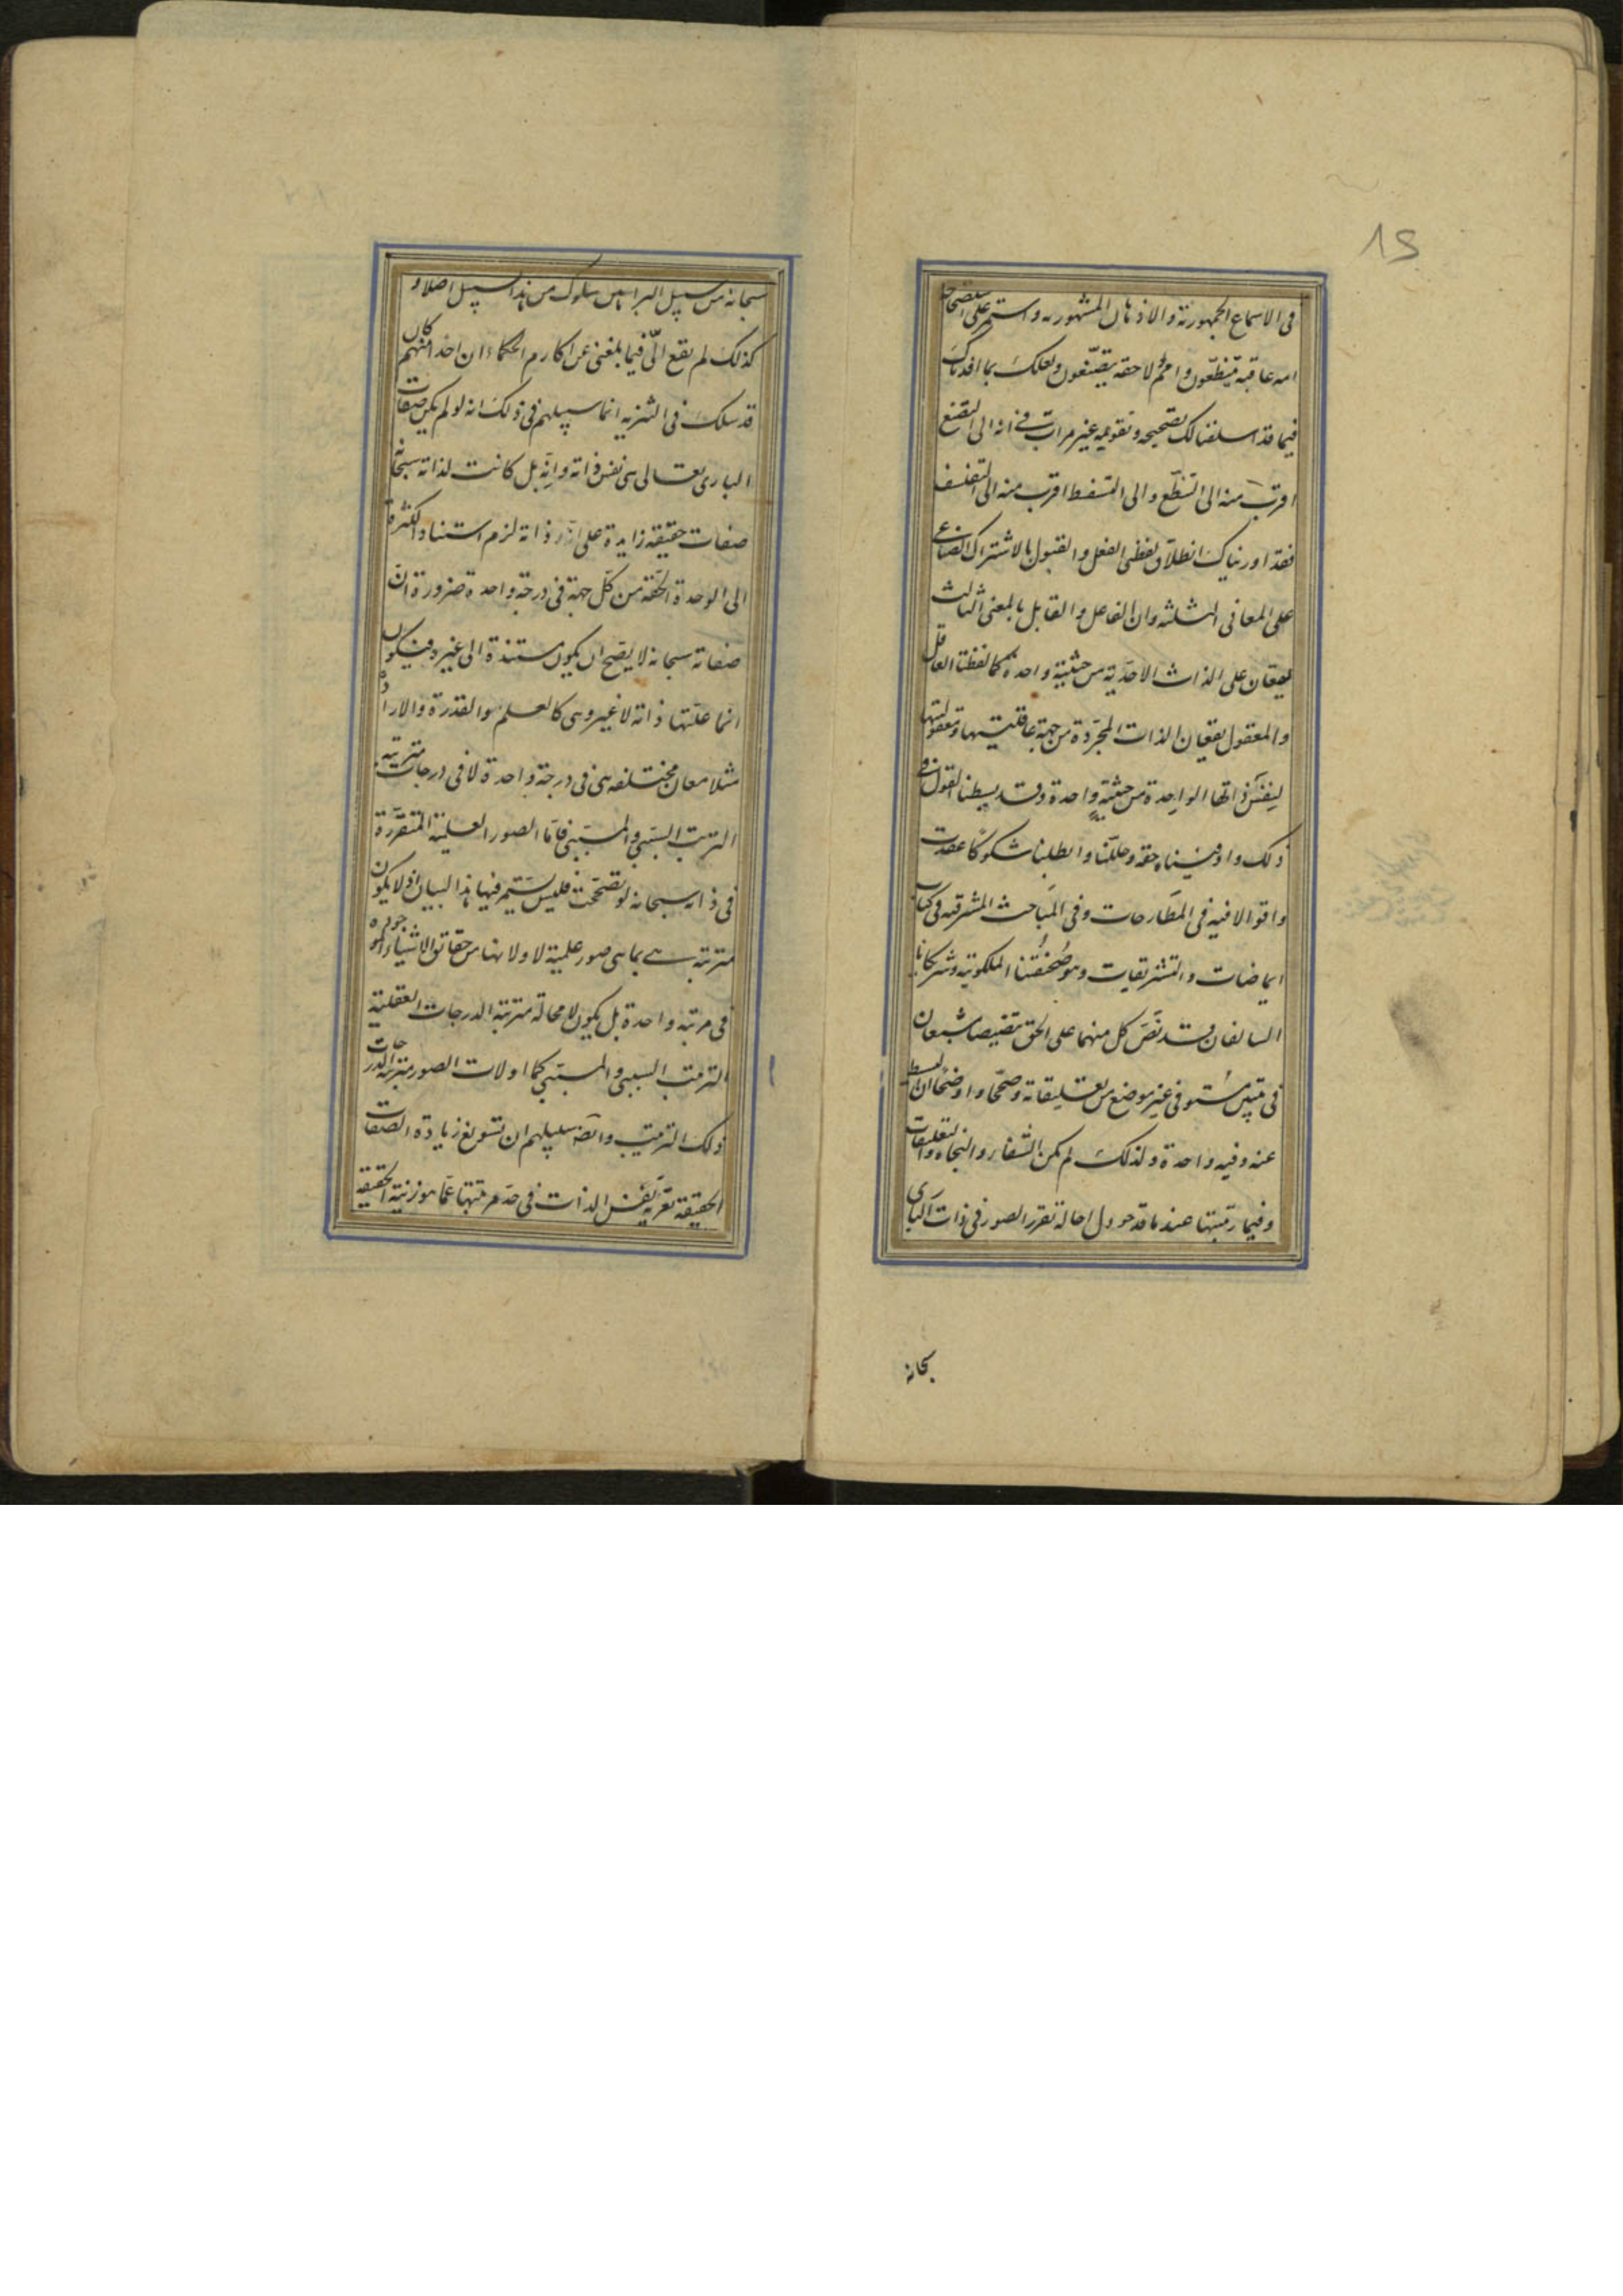 في الاسماع الجمهورية والاذهان المشهورية واستمر على استصحابه
امة عاقبة متنطّعون وامم لاحقة يتصنّعون ولعلك بما افدناك
فيما قد اسلفنا لك تصحيحه وتقويمه غير مراتب في انه الى التصنع
اقرب منه الى التنطّع والى التسفسط اقرب منه الى التفلسف
فقد اوريناك انطلاق لفظي الفعل والقبول بالاشتراك الصناعي
على المعاني الثلثة وان الفاعل والقابل بالمعنى الثالث
يقعان على الذات الاحدية من حيثية واحدة كما لفظتا العاقل
والمعقول يقعان الذات المجردة من جهة عاقليتها ومعقوليتها
لنفس ذاتها الواحدة من حيثية واحدة وقد بسطنا القول في
ذلك واوفيناه حقه وحللنا وابطلنا شكوكا عقدت
واقوالا فيه في المطارحات وفي المباحث المشرقية في كتاب
ايماضات والتشريقات وهو صحفتنا الملكوتية وشركانا
السالفان قد نصّ كل منهما على الحق تنصيصا شبعان
في تبيين مستوفى غير موضع من تعليقاته وضحا واوضحا ان البسيط
عنه وفيه واحدة ولذلك لم يكن الشفاء والنجاة والتعليقات
وفيما رتبتها عند ما قد حوول احالة تقرر الصور في ذات الباري
بحانه
سبحانه من سبيل البراهين سلوك من هذا السبيل اصلا و
كذلك لم يقع الىّ فيما بلغني عن اكارم الحكماء ان احدا منهم كان
قد سلك في التنزيه انما سبيلهم في ذلك انه لو لم يكن صفات
الباري تعالى هي نفس ذاته وانّه بل كانت لذاته سبحانه
صفات حقيقة زايدة على ذاته لزم استناد الكثرة
الى الوحدة الحقة من كل جهة في درجة واحدة ضرورة انّ
صفاته سبحانه لا يصح ان يكون مستندة الى غيره فيكون
انما علتها ذاته لا غير وهي كالعلم والقدرة والارادة
مثلا معان مختلفة هي في درجة واحدة لا في درجات مترتبة
الترتب السببي والمسببي فامّا الصور العلمية المتقررة
في ذاته سبحانه لو تصححت فليس يستمر فيها هذا البيان اذ لا يكون
مترتبة بما هي صور علمية لاولانها من حقائق الاشياء الموجودة
في مرتبة واحدة بل يكون لا محالة مترتبة الدرجات العقلية
الترتب السببي والمسببي كما اولات الصور مترتبة الدرجات
ذلك الترتيب وايضا سبيلهم ان تسويغ زيادة الصفات
الحقيقة تعرية نفس الذات في حد مرتبتها عما هو زنية الحقيقة